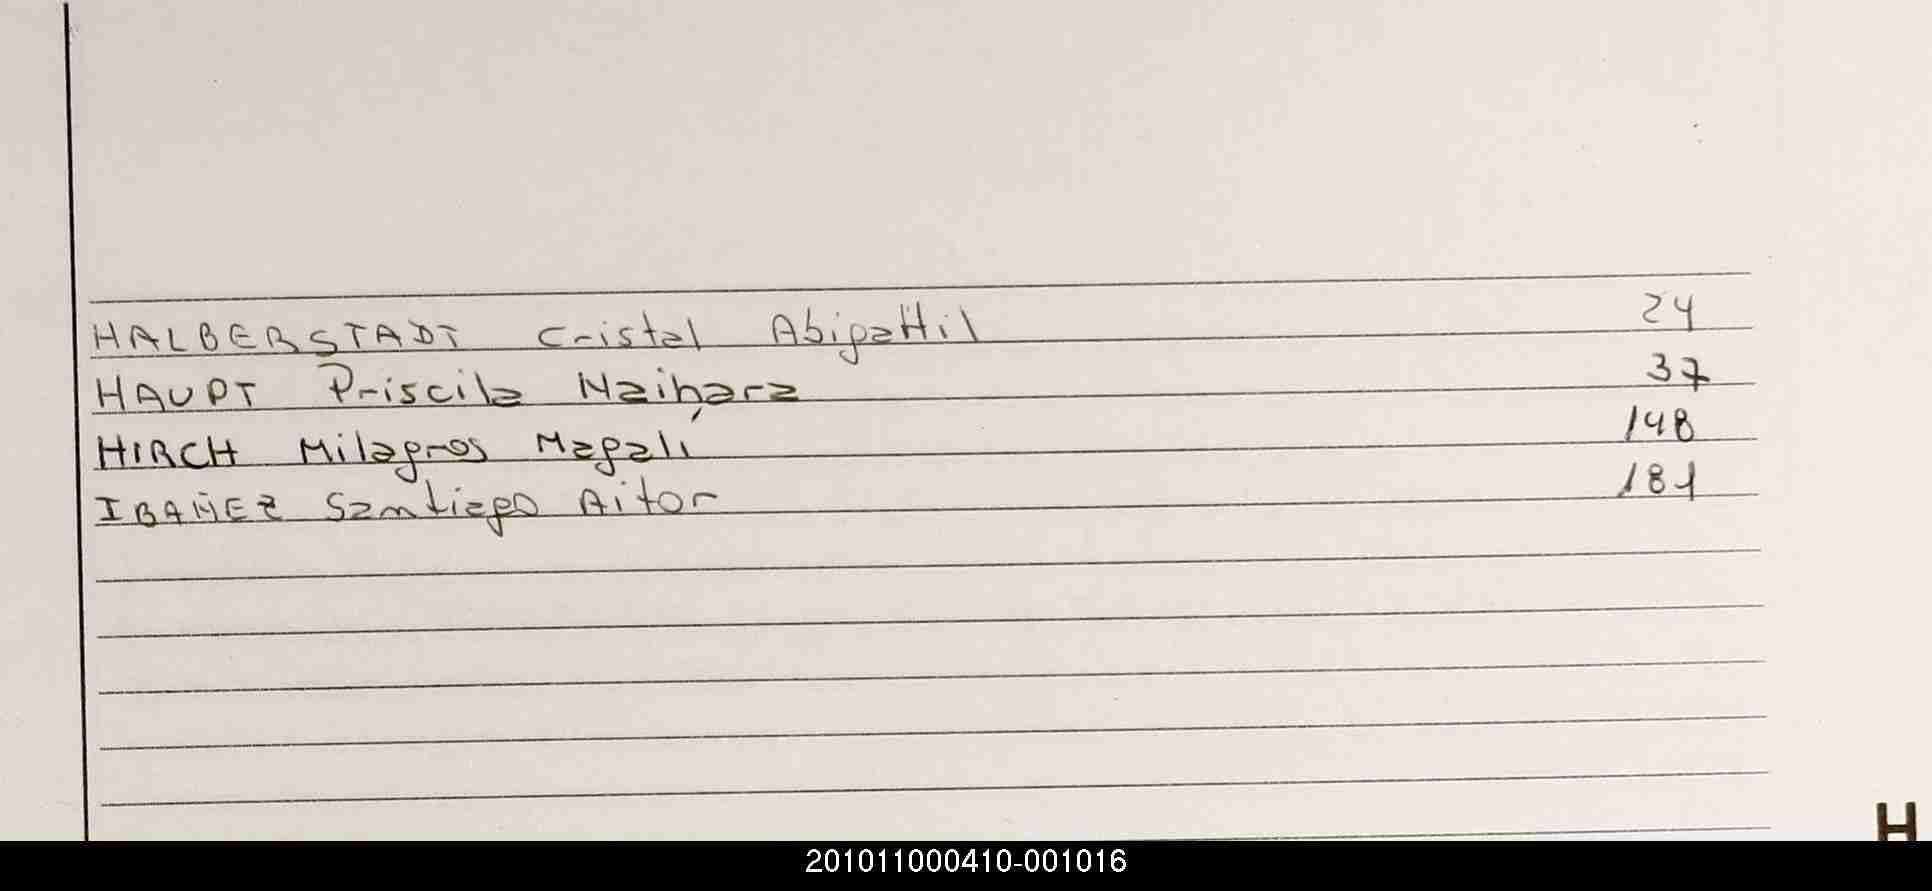 HALBERSTADT Cristal Abigattil 24
HAUPT Priscila Naihara 37
HIRCH Milagros Magalí 148
IBAÑEZ Santiago Aitor 181
H
201011000410-001016